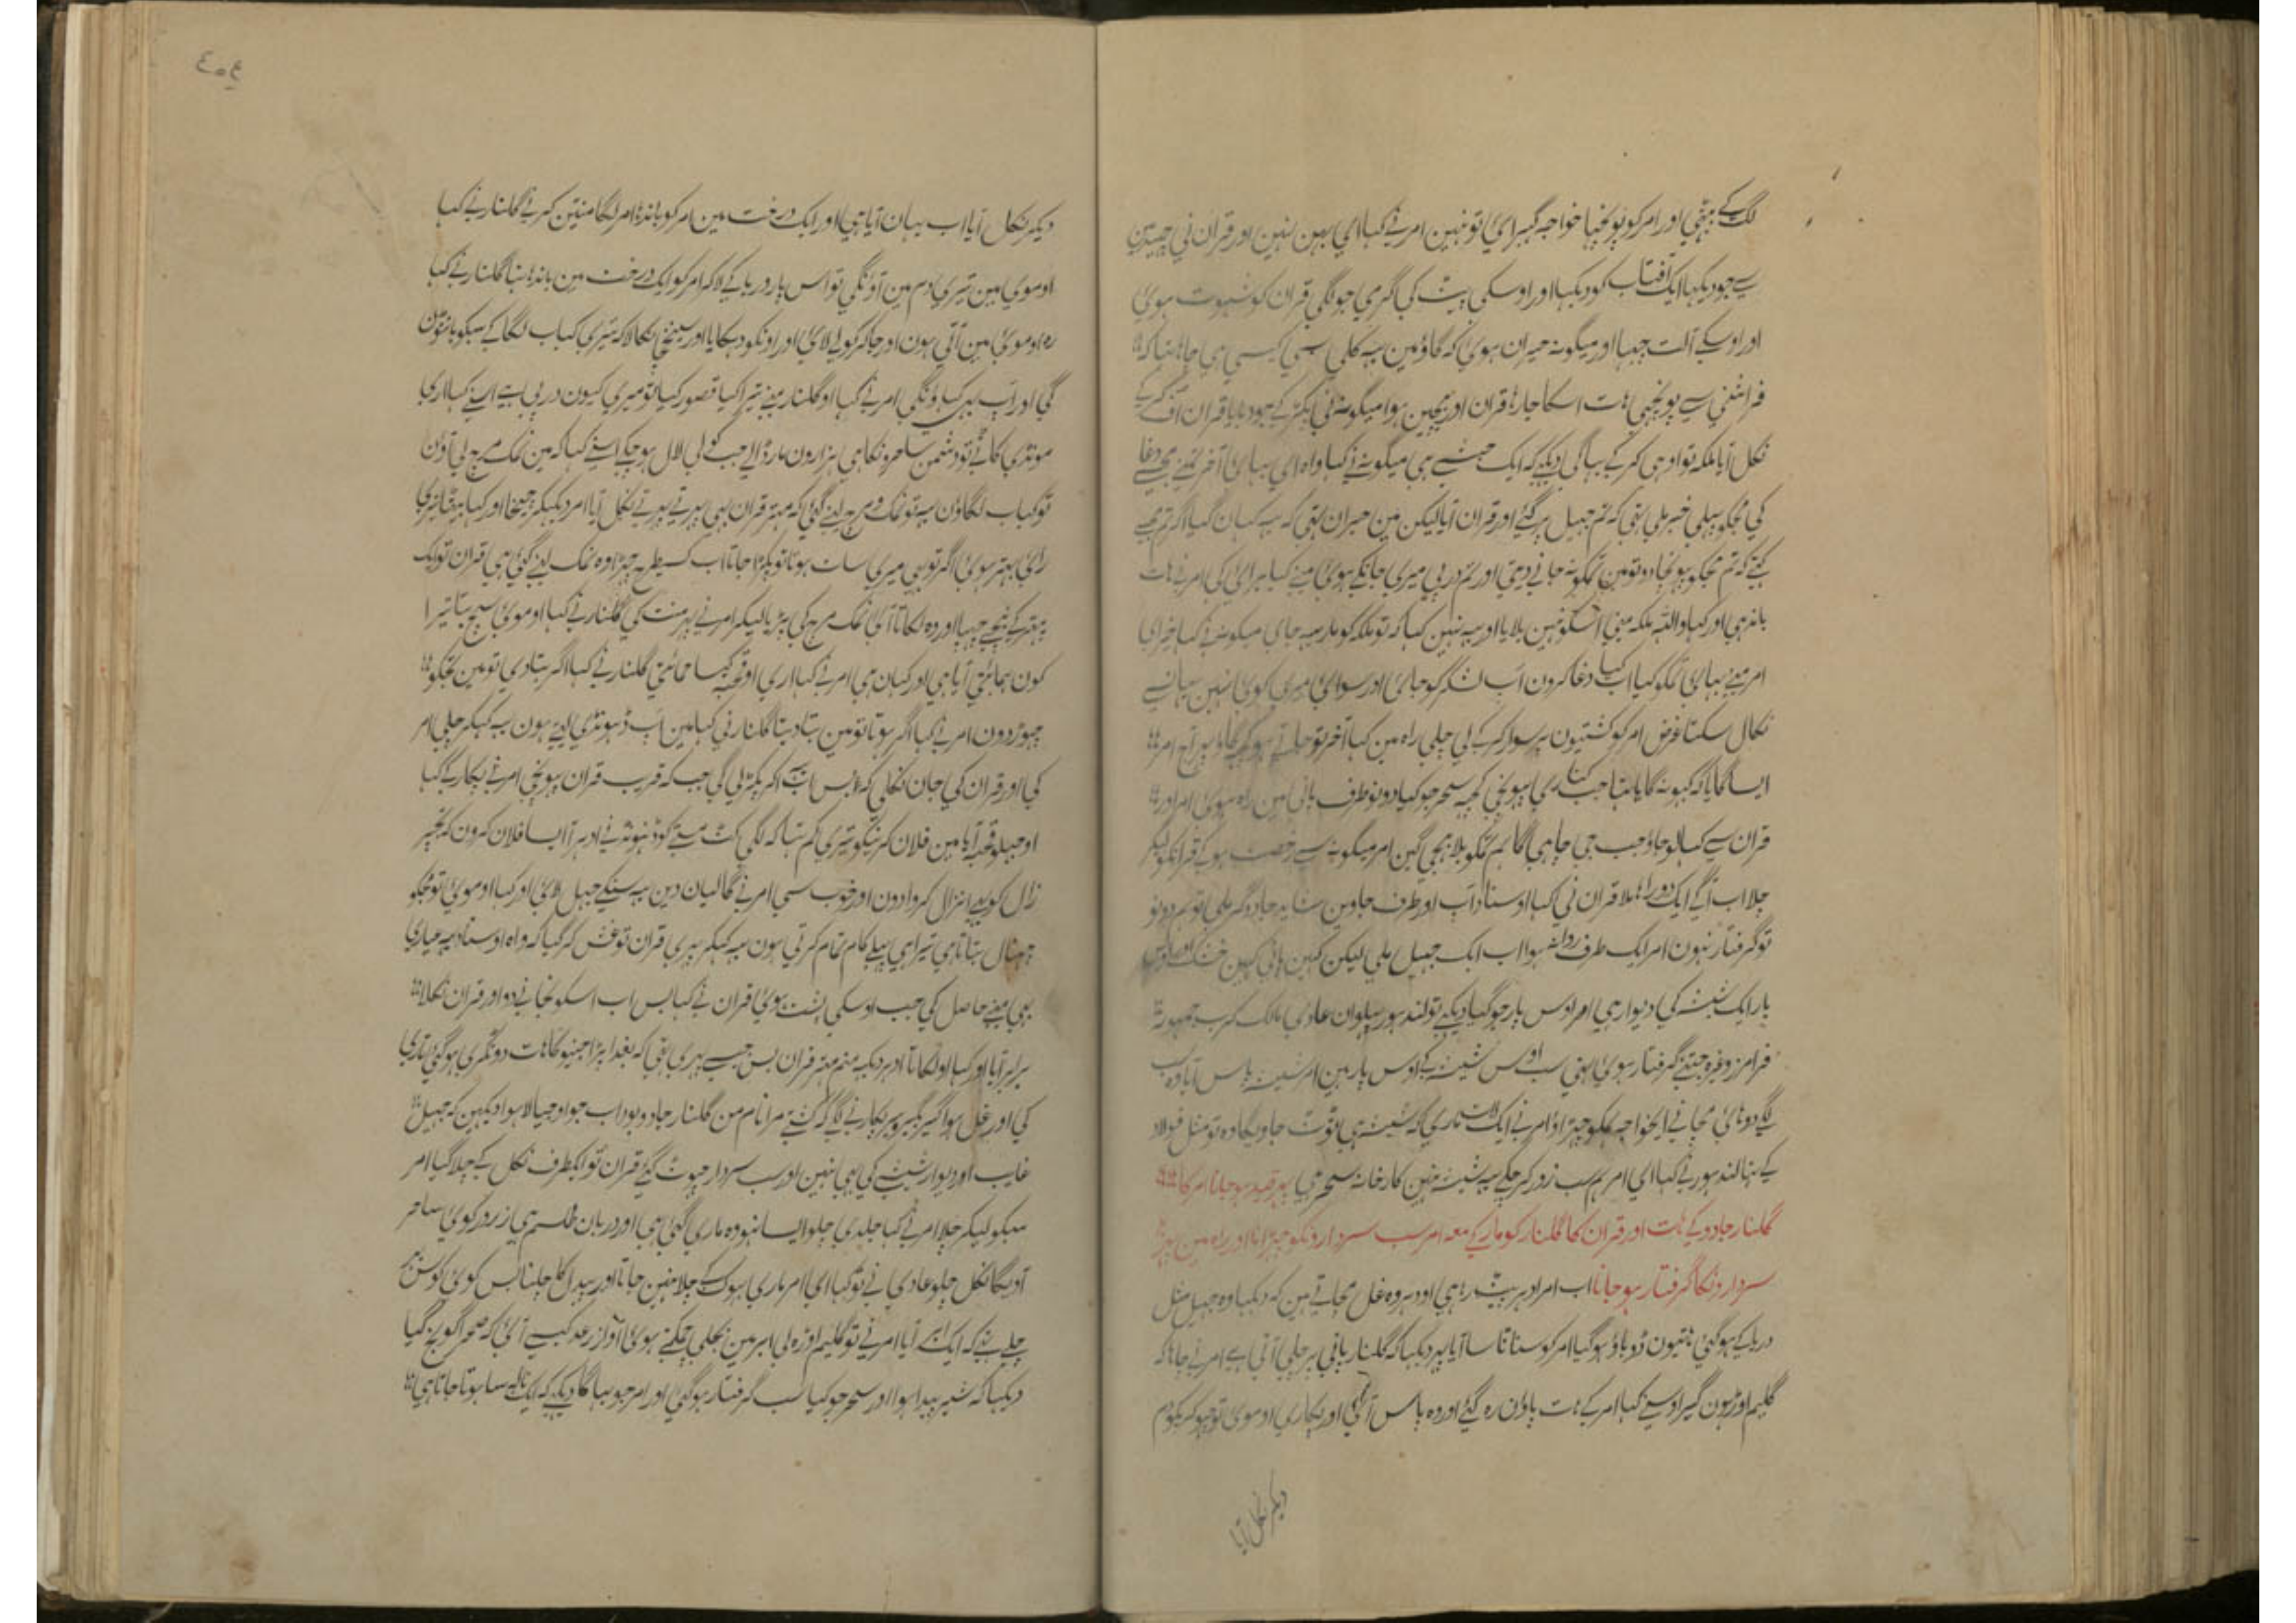 لگ کے بیٹھی اور امر کو پونچھا خواجہ گھبرائی تو نہین امر نے کہا ای بہن نہین اور قران نی
سے جو دیکھا ایک آفتاب کو دیکھا اور اوسکی پشت کی گرمی جو لگی قران کو شہوت ہوئ
اور اوسکے آلت جبہا اور میگونہ حیران ہوئ کہ گاؤ مین یہ کلی سی کیسی ہی چاہا تہا کہ
نکل آیا ملکہ تو اوہی کر کے بہاگی دیکہے کہ ایک حبشے ہی میگونہ نے کہا واہ ای بہائ آخر تمنے مجسے دغا
کی مجکو پہلی خبر ملی تھی کہ تم جھیل پر گئے اور قران آیا لیکن مین حیران تھی کہ یہ کہان گیا اگر تم مجسے
کہتے کہ تم مجکو پہونچا دو تو مین تمکو نہ جانے دیتی اور تم درپی میری جانکے ہوئ مینے کیا برائ کی امر نے ہات
باندہی اور کہا واللہ ملکہ مینی اسکو نہین بلایا اور یہ نہین کہا کہ تو ملکہ کو مار یہ جای میگونہ نے کہا خیر ای
امر مینے بہائ تمکو کیا اب کیا دغا کرون آپ لشکر کو جائ اور سوای میری کوئ نہین یہانسے
نکال سکتا غرض امر کو کشتیون پر سوار کر کے لی چلی راہ مین کہا آخر تو جاتے ہو کچہہ گاؤ امر
ایسا گایا کہ کبہو نہ گایا تہا جب کناری پہونچی کچہہ سحر جو کیا دونو طرف پانی مین راہ ہوئ امر اور
قران سے کہا لو جاؤ جب جی چاہی گا ہم تمکو بلا بھیجی گین امر میگونہ سے رخصت ہو کے قرانکو لیکر
چلا اب آگے ایک دوراہا ملا قران نی کہا اوستاد آپ اور طرف جاوین شاید جادوگر ملی تو ہم دونو
تو گرفتار نہون امر ایک طرف روانہ ہوا اب ایک جھیل ملی لیکن کہین پانی کہین خشک
پار ایک شیشہ کی دیوار ہی امر اوس پار جو گیا دیکہے تو لندہور پہلوان عادی مالک کرب جمہور
فرامرز وغیرہ جتنے گرفتار ہوئ تہی سب اوس شیشہ کے اوس پار ہین امر شیشہ پاس آیا وہ سب
لگے دوہائ مچانے ایخواجہ ہمکو چہڑاؤ امر نے ایک لات ماری کہ شیشہ ہی ٹوٹ جاویگا وہ تو مثل فولاد
کے تہا لندہور نے کہا ای امر ہم سب زور کر چکے یہ شیشہ نہین کارخانہ سحر ہی پہر قید ہو جانا امر کا
گلنار جادو کے ہات اور قران کا گلنار کو مار کے معہ امر سب سردارونکو چہڑانا اور راہ مین پہر
سردارونکا گرفتار ہو جانا اب امر ادہر بیٹہہ رہا ہی اور ادہر وہ غل مچاتے ہین کہ دیکہا وہ جھیل مثل
دریا کے ہو گئی ہتیون ڈوباؤ ہو گیا امر کو سناٹا سا آیا پہر دیکہا کہ گلنار پانی پر چلی آتی ہے امر نے چاہا کہ
گلیم اوڑہون گیر اوسنے کہا امر کے ہات پاؤن رہ گئے اور وہ پاس آئی اور پکاری او موئ تو جوکریکو دم
دیکر نکل آیا
٤٥٤
دیکر نکل آیا اب یہان آیا ہی اور ایک درخت مین امر کو باندہا امر لگا منتین کرنے گلنار نے کہا
او موی مین تیری دم مین آونگی تو اس پار دریا کے لا کر امر کو ایک درخت مین باندہا تہا گلنار نے کہا
رہ او موئ مین آتی ہون اور جا کر کوئلے لائ اور اونکو دہکایا اور سیخچا نکالا کہ تیری کباب لگا کے سبکو بانٹون
گی اور آپ بہی کہاونگی امر نے کہا او گلنار مینے تیرا کیا قصور کیا تو میری کیون درپی ہے اسنے کہا اری
مونڈی کاٹے تو دشمن ساحرونکا ہی ہزارون مار ڈالے جب کوئلے لال ہو چکے اسنے کہا کہ مین نمک مرچ لی آؤن
تو کباب لگاؤن یہ تو نمک و مرچ لینے گئ کہ مہتر قران بہی پہرتے پہرتے نکل آیا امر دیکہکر چیخا اور کہا بیٹا تیری
رائ بہتر ہوئ اگر تو بہی میری سات ہوتا تو پکڑا جاتا اب کسیطرح چہڑا وہ نمک لینے گئ ہی قران تو ایک
پتہر کے نیچے چہپا اور وہ لکاتا آئ نمک مرچ کی پڑیا لیکر امر نے پہر منت کی گلنار نے کہا او موئ سچ بتا تیرا
کون حمائتی آیا ہی اور کہان ہی امر نے کہا اری او قحبہ کیسا حمائتی گلنار نے کہا اگر بتا دی تو مین تجکو
چہوڑ دون امر نے کہا اگر ہوتا تو مین بتا دیتا گلنار نی کہا مین آپ ڈہونڈی لیتے ہون یہ کہکر چلی امر
کی اور قران کی جان نکلی کہ بس اب یہ آکر پکڑ لی گی جب کہ قریب قران پہونچی امر نے پکار کے کہا
زال کو بہی انزال کروا دون اور خوب سی امر نے گالیان دین یہ سنکے جہل لائ اور کہا او موئ تو مجکو
چہنال بتاتا ہی تیرا ہی پہلے کام تمام کرتی ہون یہ کہکر پہری قران تو غش کر گیا کہ واہ اوستاد یہ عیاری
بہی مینے حاصل کی جب اوسکی پشت ہوئ قران نے کہا بس اب اسکو نجانے دو اور قران نکلا
برابر آیا اور کہا او لکاتا ادہر دیکہہ منم مہتر قران بس جیسے پہری تھی کہ بغدا پڑا جنیو کا ہات دو ٹکری ہو گئ تاری
کی اور غل ہوا گیر بگیر پیر پکارنے لگے کہ کشتی مرا نام من گلنار جادو بود اب جو اوجیالا ہوا دیکہین کہ جھیل
غایب اور دیوار شیشے کی بہی نہین اور سب سردار چہوٹ گئے قران تو ایکطرف نکل کے چلا گیا امر
سبکو لیکر چلا امر نے کہا جلدی چلو ایسا نہو وہ ماری گئ ہی اور دربان طلسم ہی ازرو کوئ ساحر
آویگا نکل چلو عادی نے تو کہا ای امر ماری بہوک کے چلا نہین جاتا اور پیدل کا چلنا بس کوئ کوس
چلے تہے کہ ایک ابر آیا امر نے تو گلیم اوڑہ لی ابر مین بجلی چمکنے ہوئ آواز رعد کیسے آئ کہ صحرا گونج گیا
دیکہا کہ شیر پیدا ہوا اور سحر جو کیا سب گرفتار ہو گئ اور امر جو بہاگا دیکہے کہ ایک نالہ سا ہوتا جاتا ہی